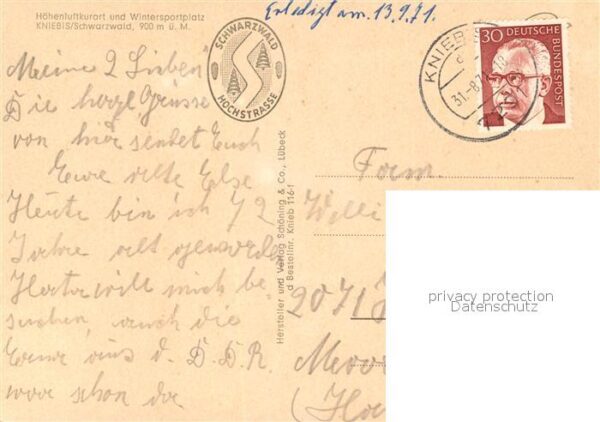 Höhenluftkurort und Wintersportplatz
KNIEBIS/Schwarzwald, 900 m ü. M.
Erledigt am. 13.9.71.
SCHWARZWALD
HOCHSTRASSE
KNIEBIS
31.-8.71
30 DEUTSCHE
BUNDESPOST
Meine 2 Lieben
Die herzl Grüsse
von hier sendet Euch
Eure alte Else
Heute bin ich 72
Jahre alt geworden
will mich be
suchen, auch die
Erna aus d. D.D.R.
war schon da
Hersteller und Verlag Schöning & Co., Lübeck
d Bestellnr. Knieb 116 f
Fam.
Willi
2071
privacy protection
Datenschutz